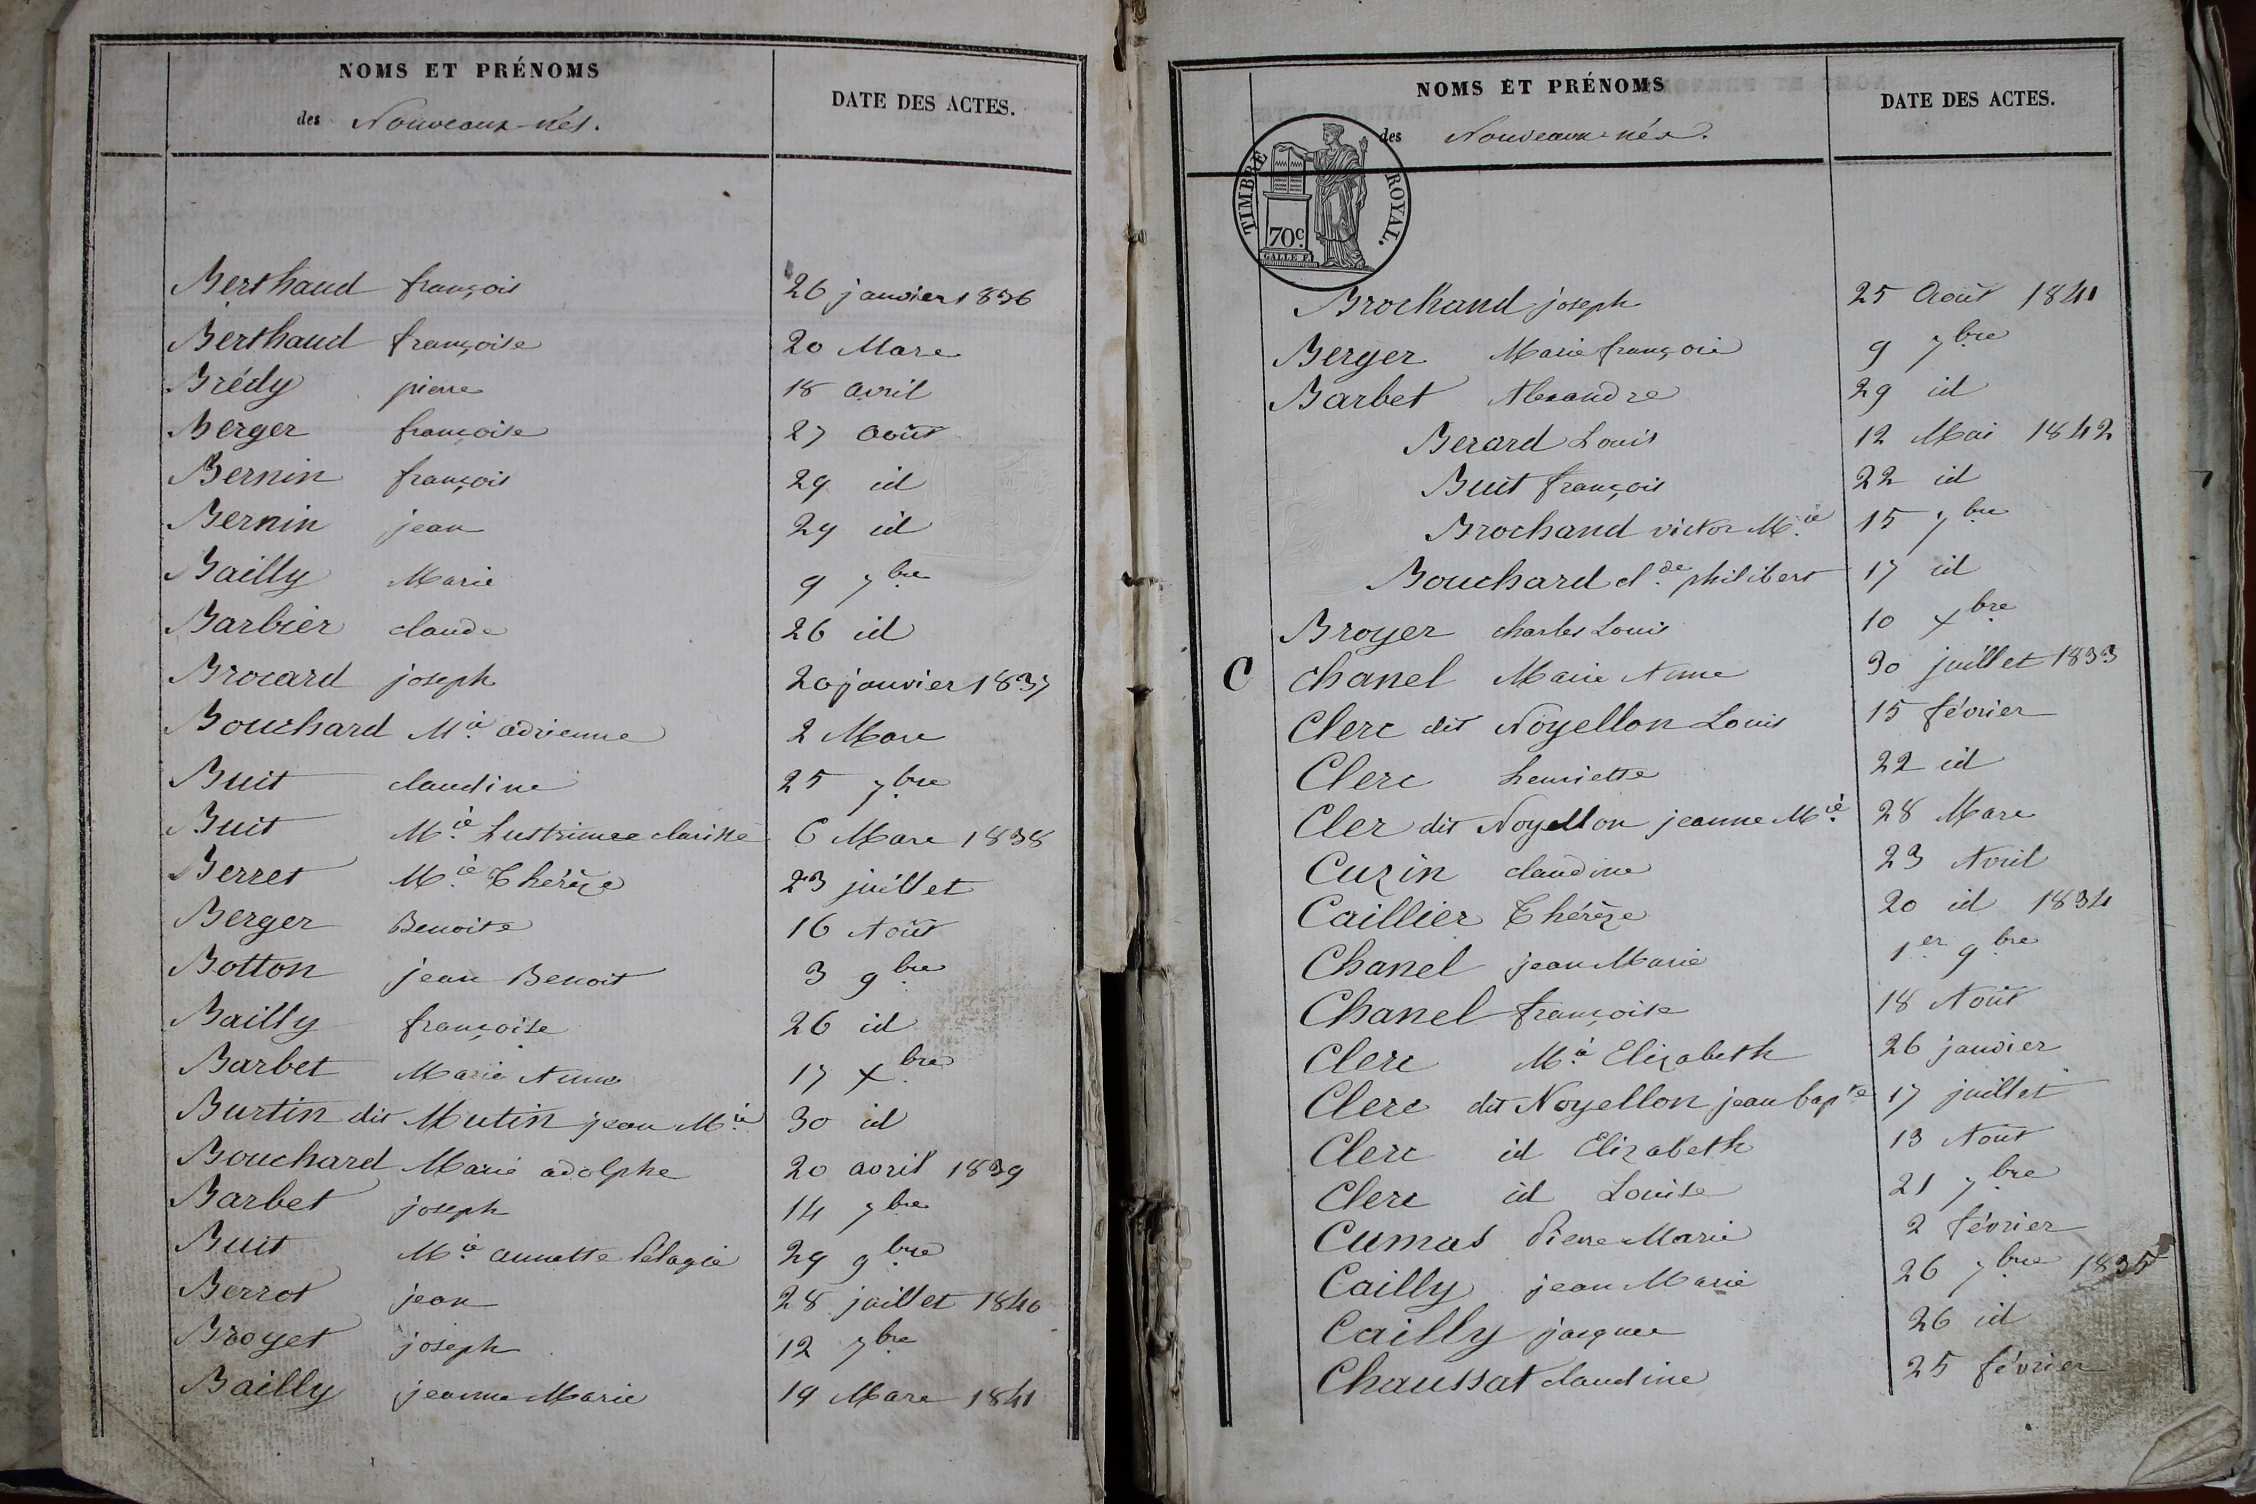 NOMS ET PRÉNOMS
des Nouveaux-nés.
DATE DES ACTES.
Berthaud françois 26 janvier 1836
Berthaud françoise 20 Mars
Brédy pierre 18 avril
Berger françoise 27 août
Bernin françois 29 id
Bernin jean 29 id
Bailly Marie 9 7bre
Barbier claude 26 id
Brocard joseph 20 janvier 1837
Bouchard Mie adrienne 2 Mars
Buit claudine 25 7bre
Buit Mie clarisse 6 Mars 1838
Berret Mie Thérèze 23 juillet
Berger Benoite 16 Août
Botton jean Benoit 3 9bre
Bailly françoise 26 id
Barbet Marie Anne 17 Xbre
Burtin dit Mutin jean Mie 30 id
Bouchard Marie adolphe 20 avril 1839
Barbet joseph 14 7bre
Buit Mie annette Pélagie 29 9bre
Berrot jean 28 juillet 1840
Broyet joseph 12 7bre
Bailly jeanne Marie 19 Mars 1841
NOMS ET PRÉNOMS
des Nouveaux-nés.
DATE DES ACTES.
TIMBRE ROYAL.
70c.
Brochand joseph 25 Août 1841
Berger Marie françoie 9 7bre
Barbet Alexandre 29 id
Berard Louis 12 Mai 1842
Buit françois 22 id
Brochand victor Mie 15 7bre
Bouchard cl.de philibert 17 id
Broyer charles Louis 10 Xbre
C Chanel Marie Anne 30 juillet 1833
Clerc dit Noyellon Louis 15 février
Clerc henriette 22 id
Cler dit Noyellon jeanne Mie 28 Mars
Cuzin claudine 23 Avril
Caillier Thérèze 20 id 1834
Chanel jean Marie 1er 9bre
Chanel françoise 18 Août
Clerc Mie Elizabeth 26 janvier
Clerc dit Noyellon jean bapte 17 juillet
Clerc id Elizabeth 13 Août
Clerc id Louise 21 7bre
Cumas Pierre Marie 2 février
Cailly jean Marie 26 7bre 1835
Cailly jacques 26 id
Chaussat claudine 25 février